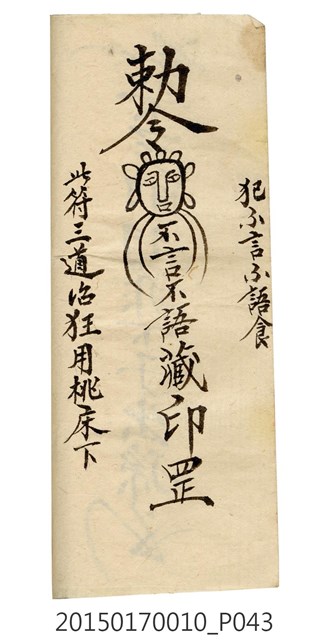 犯不言不語食
勅令
不言不語藏印罡
此符三道治狂用桃床下
20150170010_P043